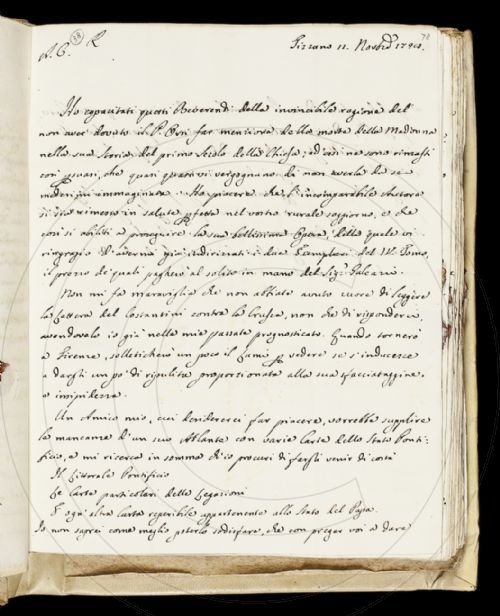 38
78
A. C. R.
Pizzano 11. Novbre 1741.
Ho capacitati questi Reverendi della invincibile ragione del
non aver dovuto il P. Orsi far menzione della morte della Madonna
nella sua storia del primo secolo della Chiesa; ed essi ne sono rimasti
così persuasi, che quasi quasi si vergognano di non averla da se
medesimi immaginata. Ho piacere che l'incomparabile Autore
si sia rimesso in salute perfetta nel vostro rurale soggiorno, e che
così si abiliti a proseguire la sua bellissima Opera, della quale vi
ringrazio d'avermi già indirizzati i due Esemplari del IV. Tomo,
il prezzo de' quali pagherò al solito in mano del Sig. Galeazzi.
Non mi fa maraviglia che non abbiate avuto cuore di leggere
la Lettera del Costantini contra la Crusca, non che di rispondervi,
avendovelo io già nella mia passata prognosticato. Quando tornerò
a Firenze, solleticherò un poco il Lami per vedere se s'inducesse
a dargli un po' di ripulita proporzionata alla sua sfacciataggine,
e insipidezza.
Un Amico mio, cui desidererei far piacere, vorrebbe supplire
la mancanza d'un suo Atlante con varie Carte dello Stato Ponti=
ficio, e mi ricerca in somma ch'io procuri di fargli venir di costà
Il Littorale Pontificio
Le Carte particolari delle Legazioni
E ogni altra Carta reperibile appartenente allo Stato del Papa.
Io non saprei come meglio poterlo sodisfare, che con pregar voi a dare